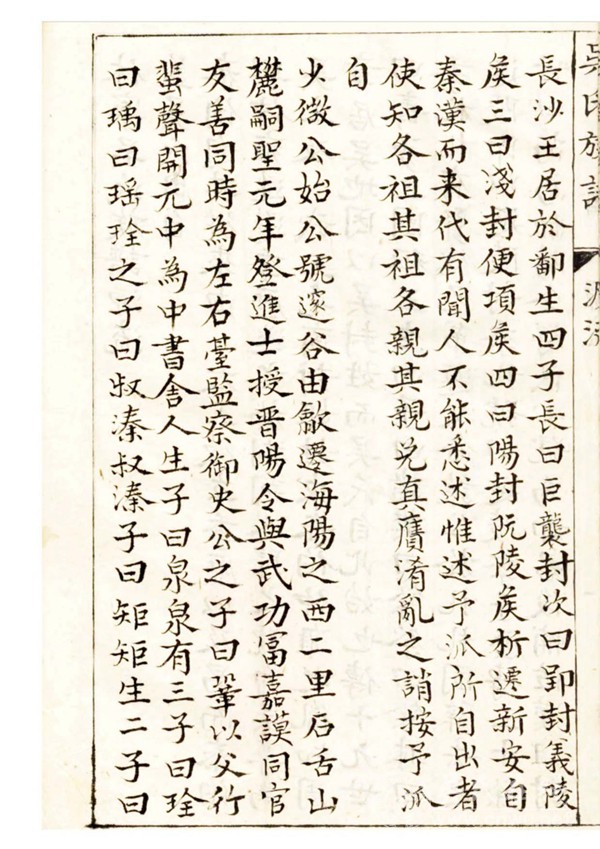 吳氏族譜
源流
長沙王居於鄱生四子長曰巨襲封次曰郢封義陵
侯三曰淺封便項侯四曰陽封阮陵侯析遷新安自
秦漢而来代有聞人不能悉述惟述予派所自出者
使知各祖其祖各親其親兑真贋淆亂之誚按予派
自
少微公始公號邃谷由歙遷海陽之西二里石舌山
麓嗣聖元年登進士授晋陽令與武功冨嘉謨同官
友善同時為左右臺監察御史公之子曰鞏以父行
蜚聲開元中為中書舍人生子曰泉泉有三子曰
曰瑀曰瑶之子曰叔溱叔溱子曰矩矩生二子曰